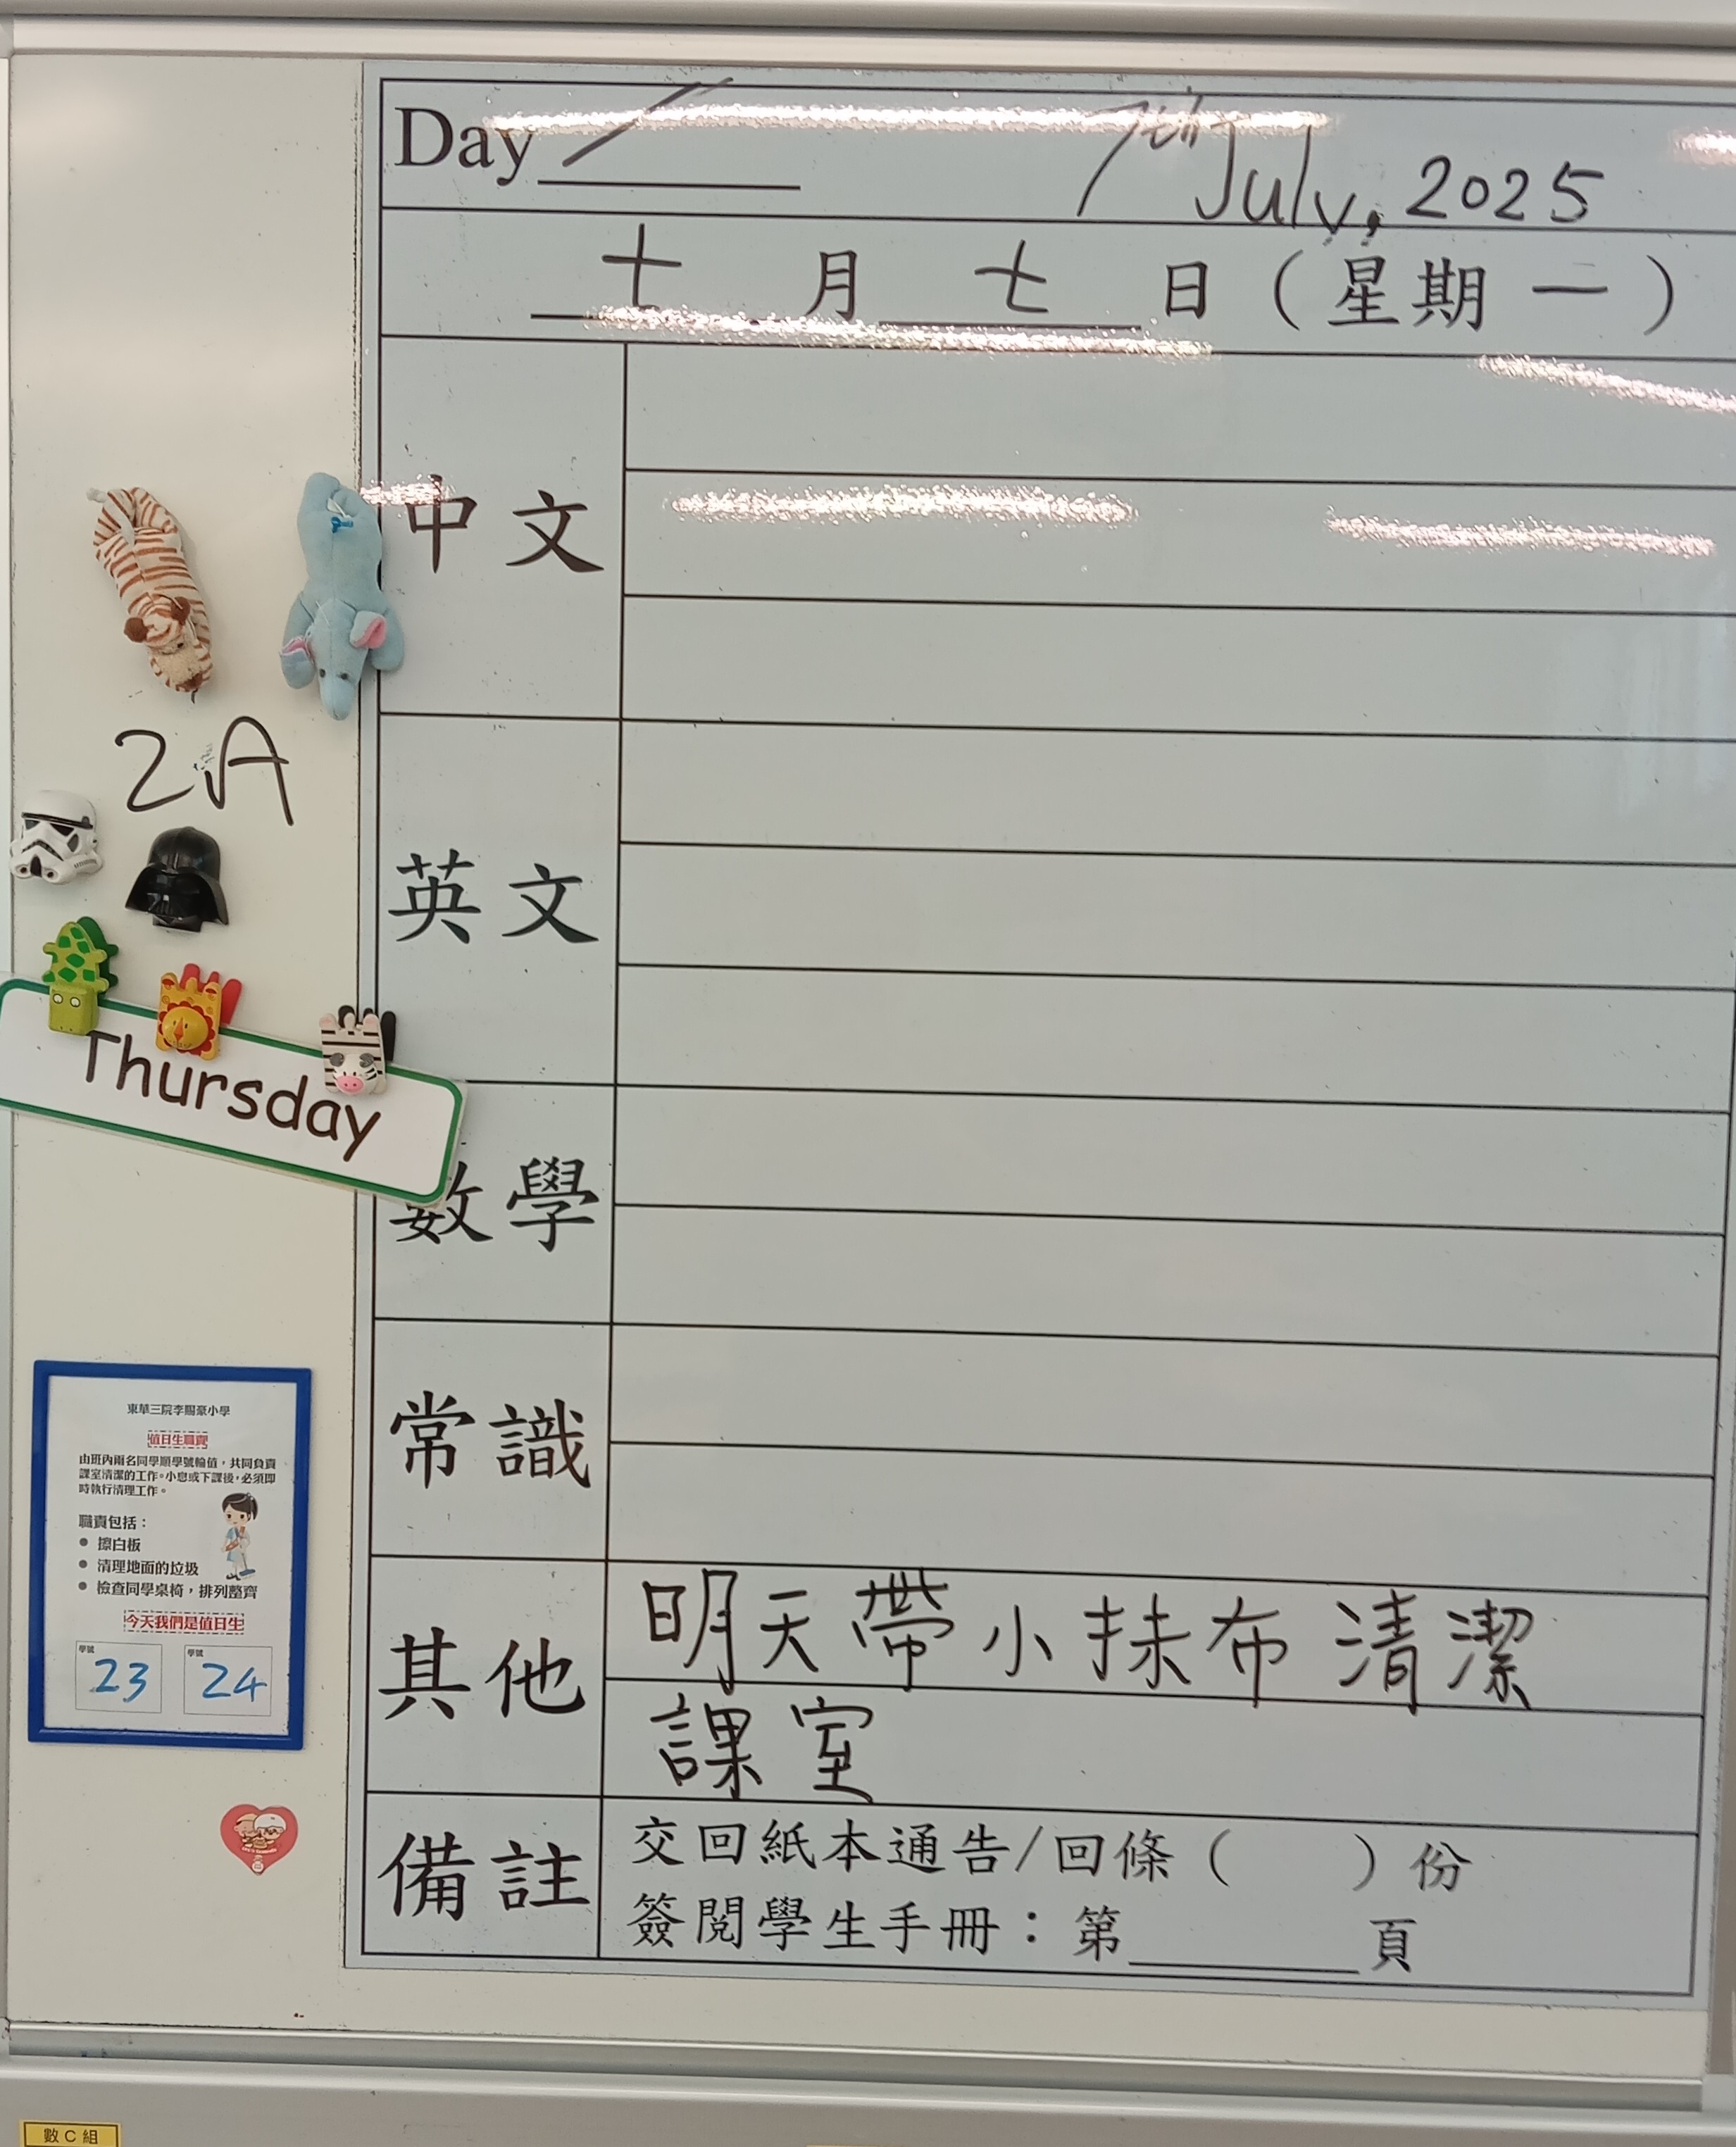 Day /
7th July, 2025
七 月 七 日 ( 星期 一 )
中文
2A
英文
Thursday
數學
常識
其他
明天帶小抹布清潔
課室
備註
交回紙本通告/回條 (　　) 份
簽閱學生手冊：第______頁
東華三院李賜豪小學
值日生職責
由班內兩名同學順學號輪值，共同負責
課室清潔的工作。小息或下課後，必須即
時執行清理工作。
職責包括：
● 擦白板
● 清理地面的垃圾
● 檢查同學桌椅，排列整齊
今天我們是值日生
學號 23 學號 24
數C組